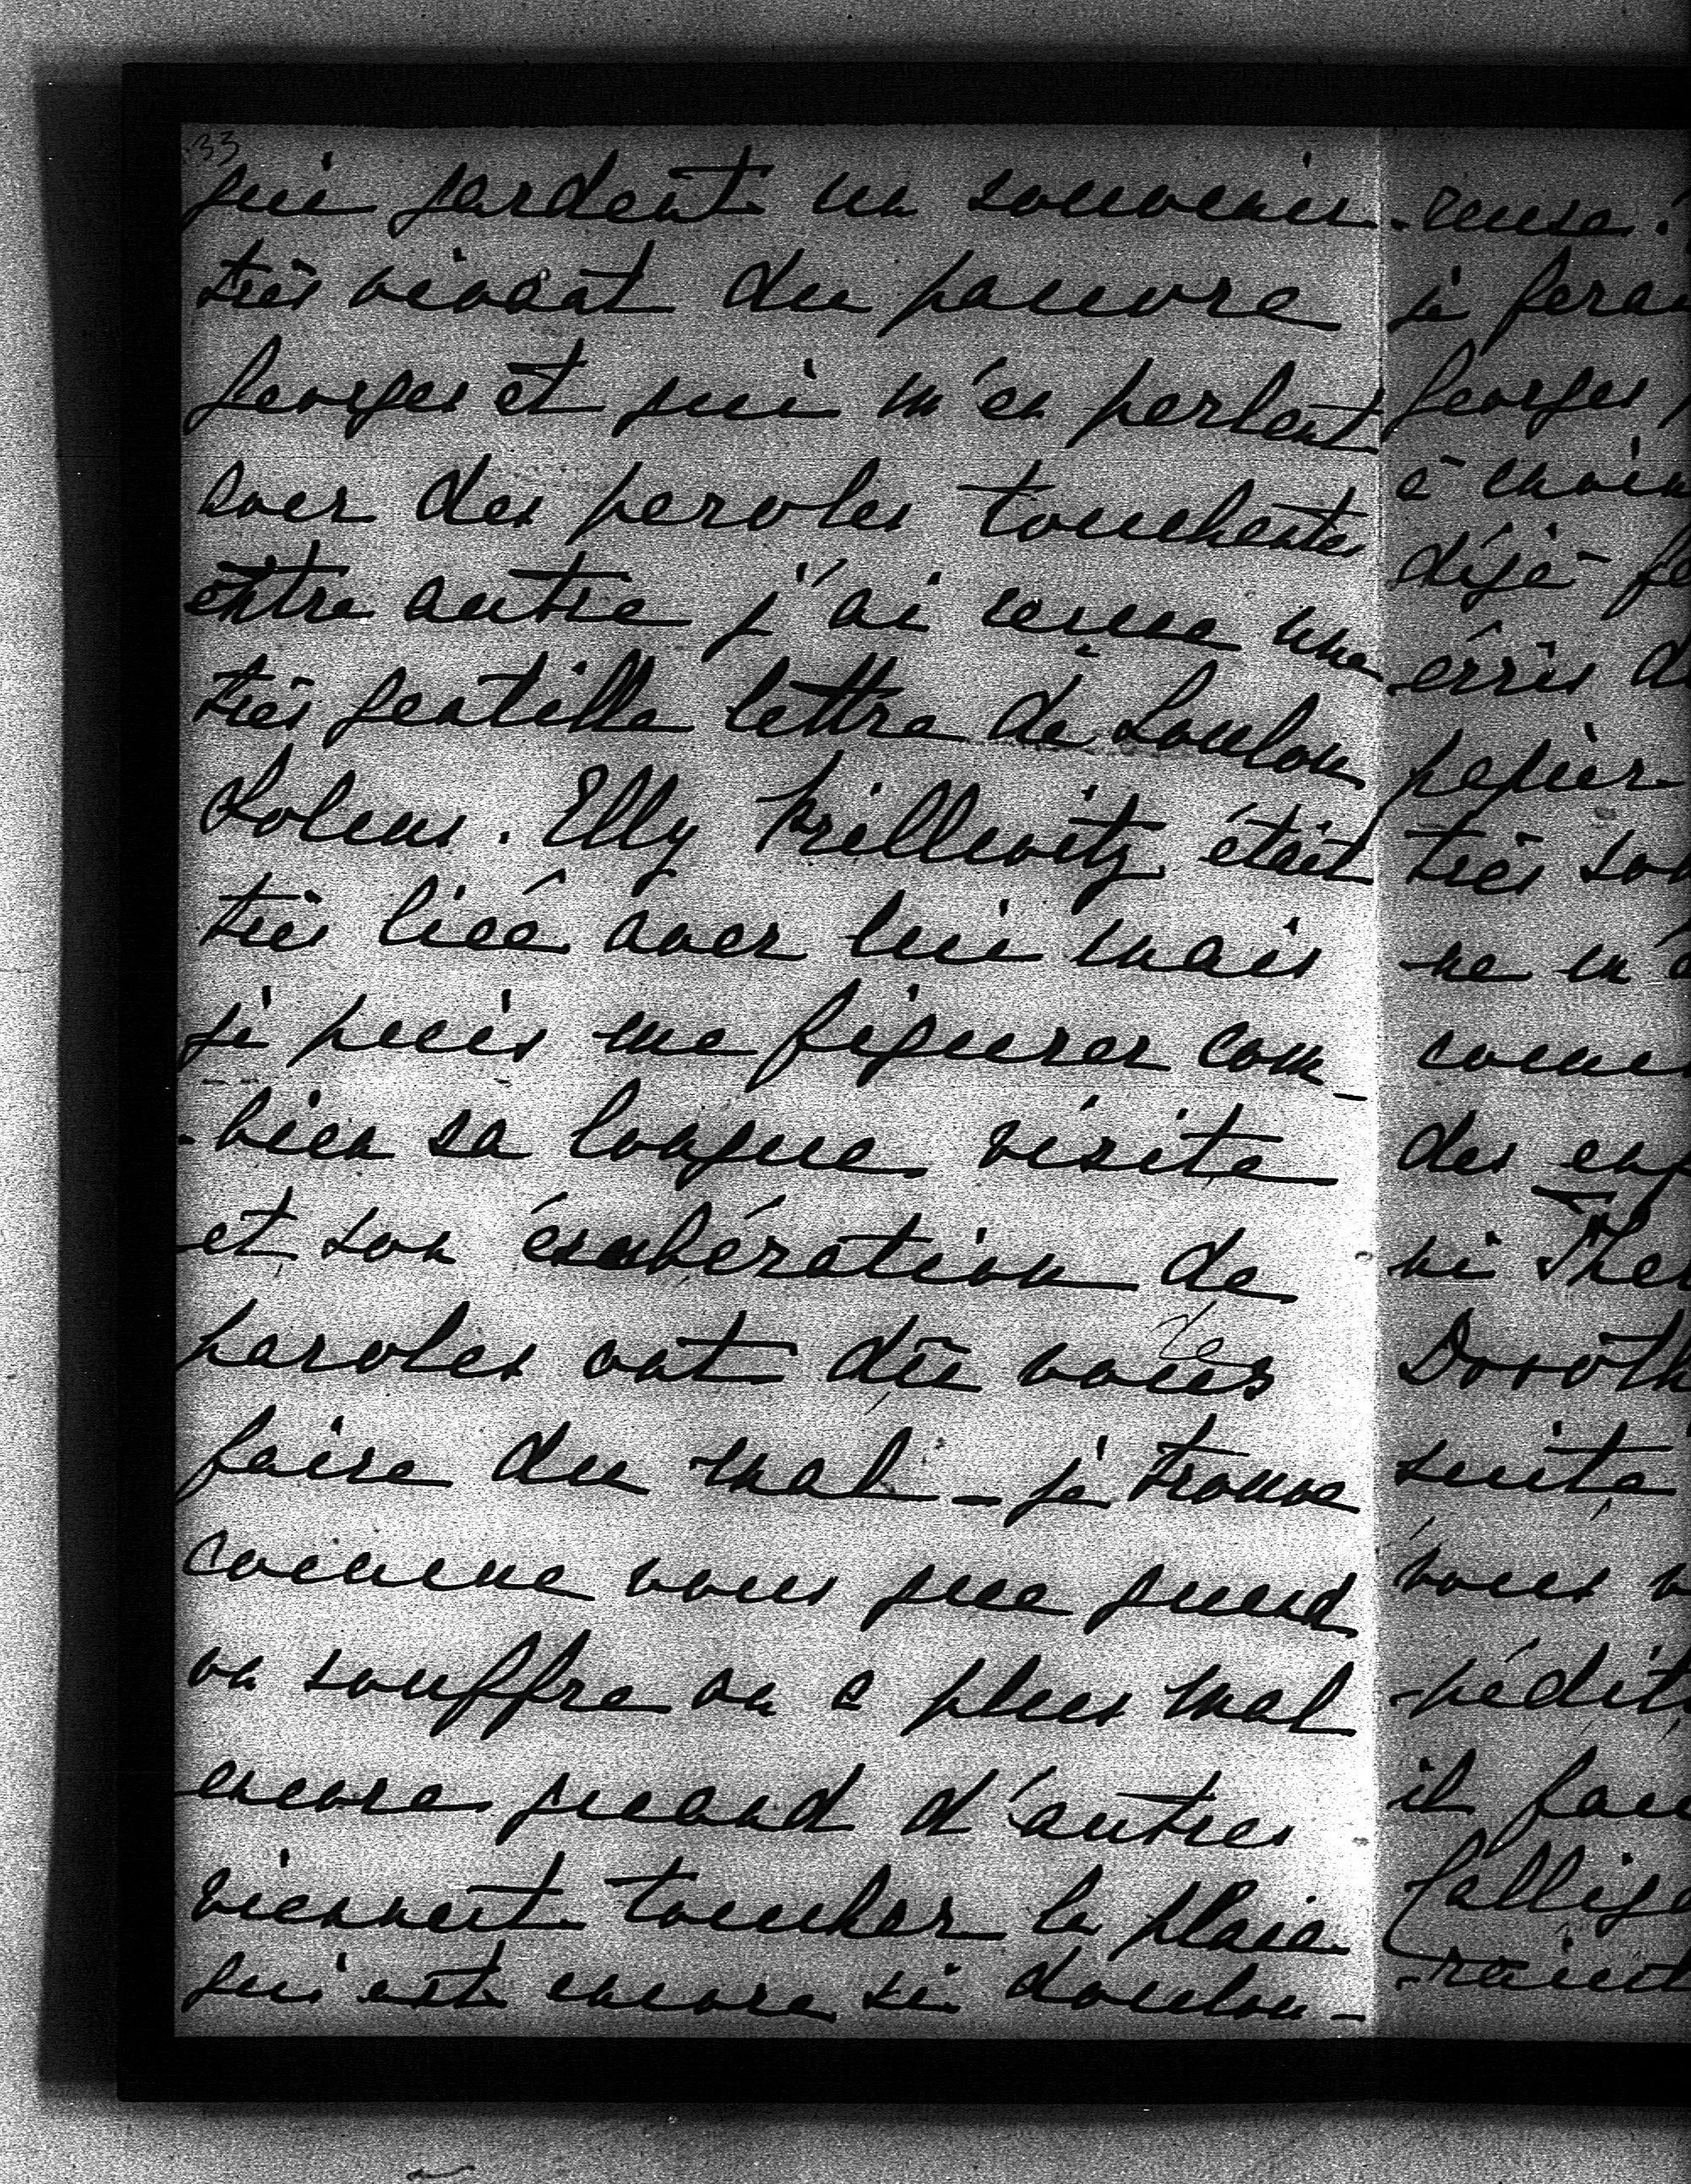 33
qui gardent un souvenir
très vivant du pauvre
Georges et qui m'en parlent
avec des paroles touchantes
entre autre j'ai reçue une
très gentille lettre de Loulou
Lolens. Elly Prillwitz était
très liée avec lui mais
je puis me figurer com-
-bien sa longue visite
et son exubération de
paroles ont dû vous
faire du mal - je trouve
comme vous que quand
on souffre on a plus mal
encore quand d'autres
viennent toucher la plaie
qui est encore si doulou-
-reuse.
je
Georges
à moin
déjà
écris
papier
très
ne m'
des
ni
Doroth
suite
vous
-pédit
il